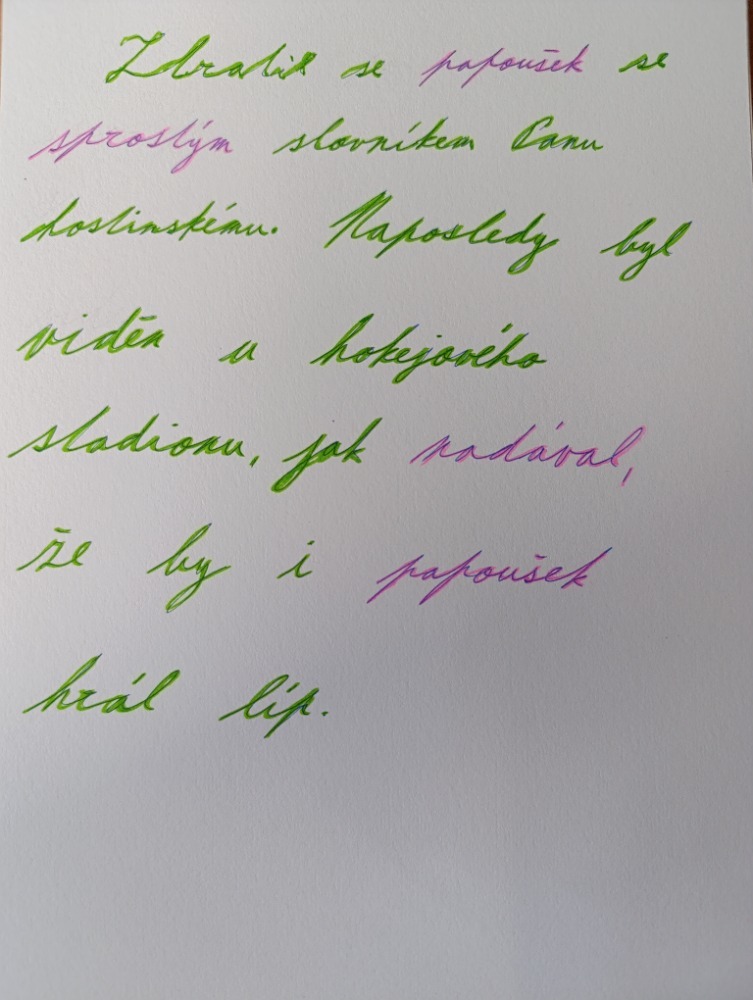 Ztratil se papoušek se
sprostým slovníkem Panu
hostinskému. Naposledy byl
viděn u hokejového
stadionu, jak nadával,
že by i papoušek
hrál líp.